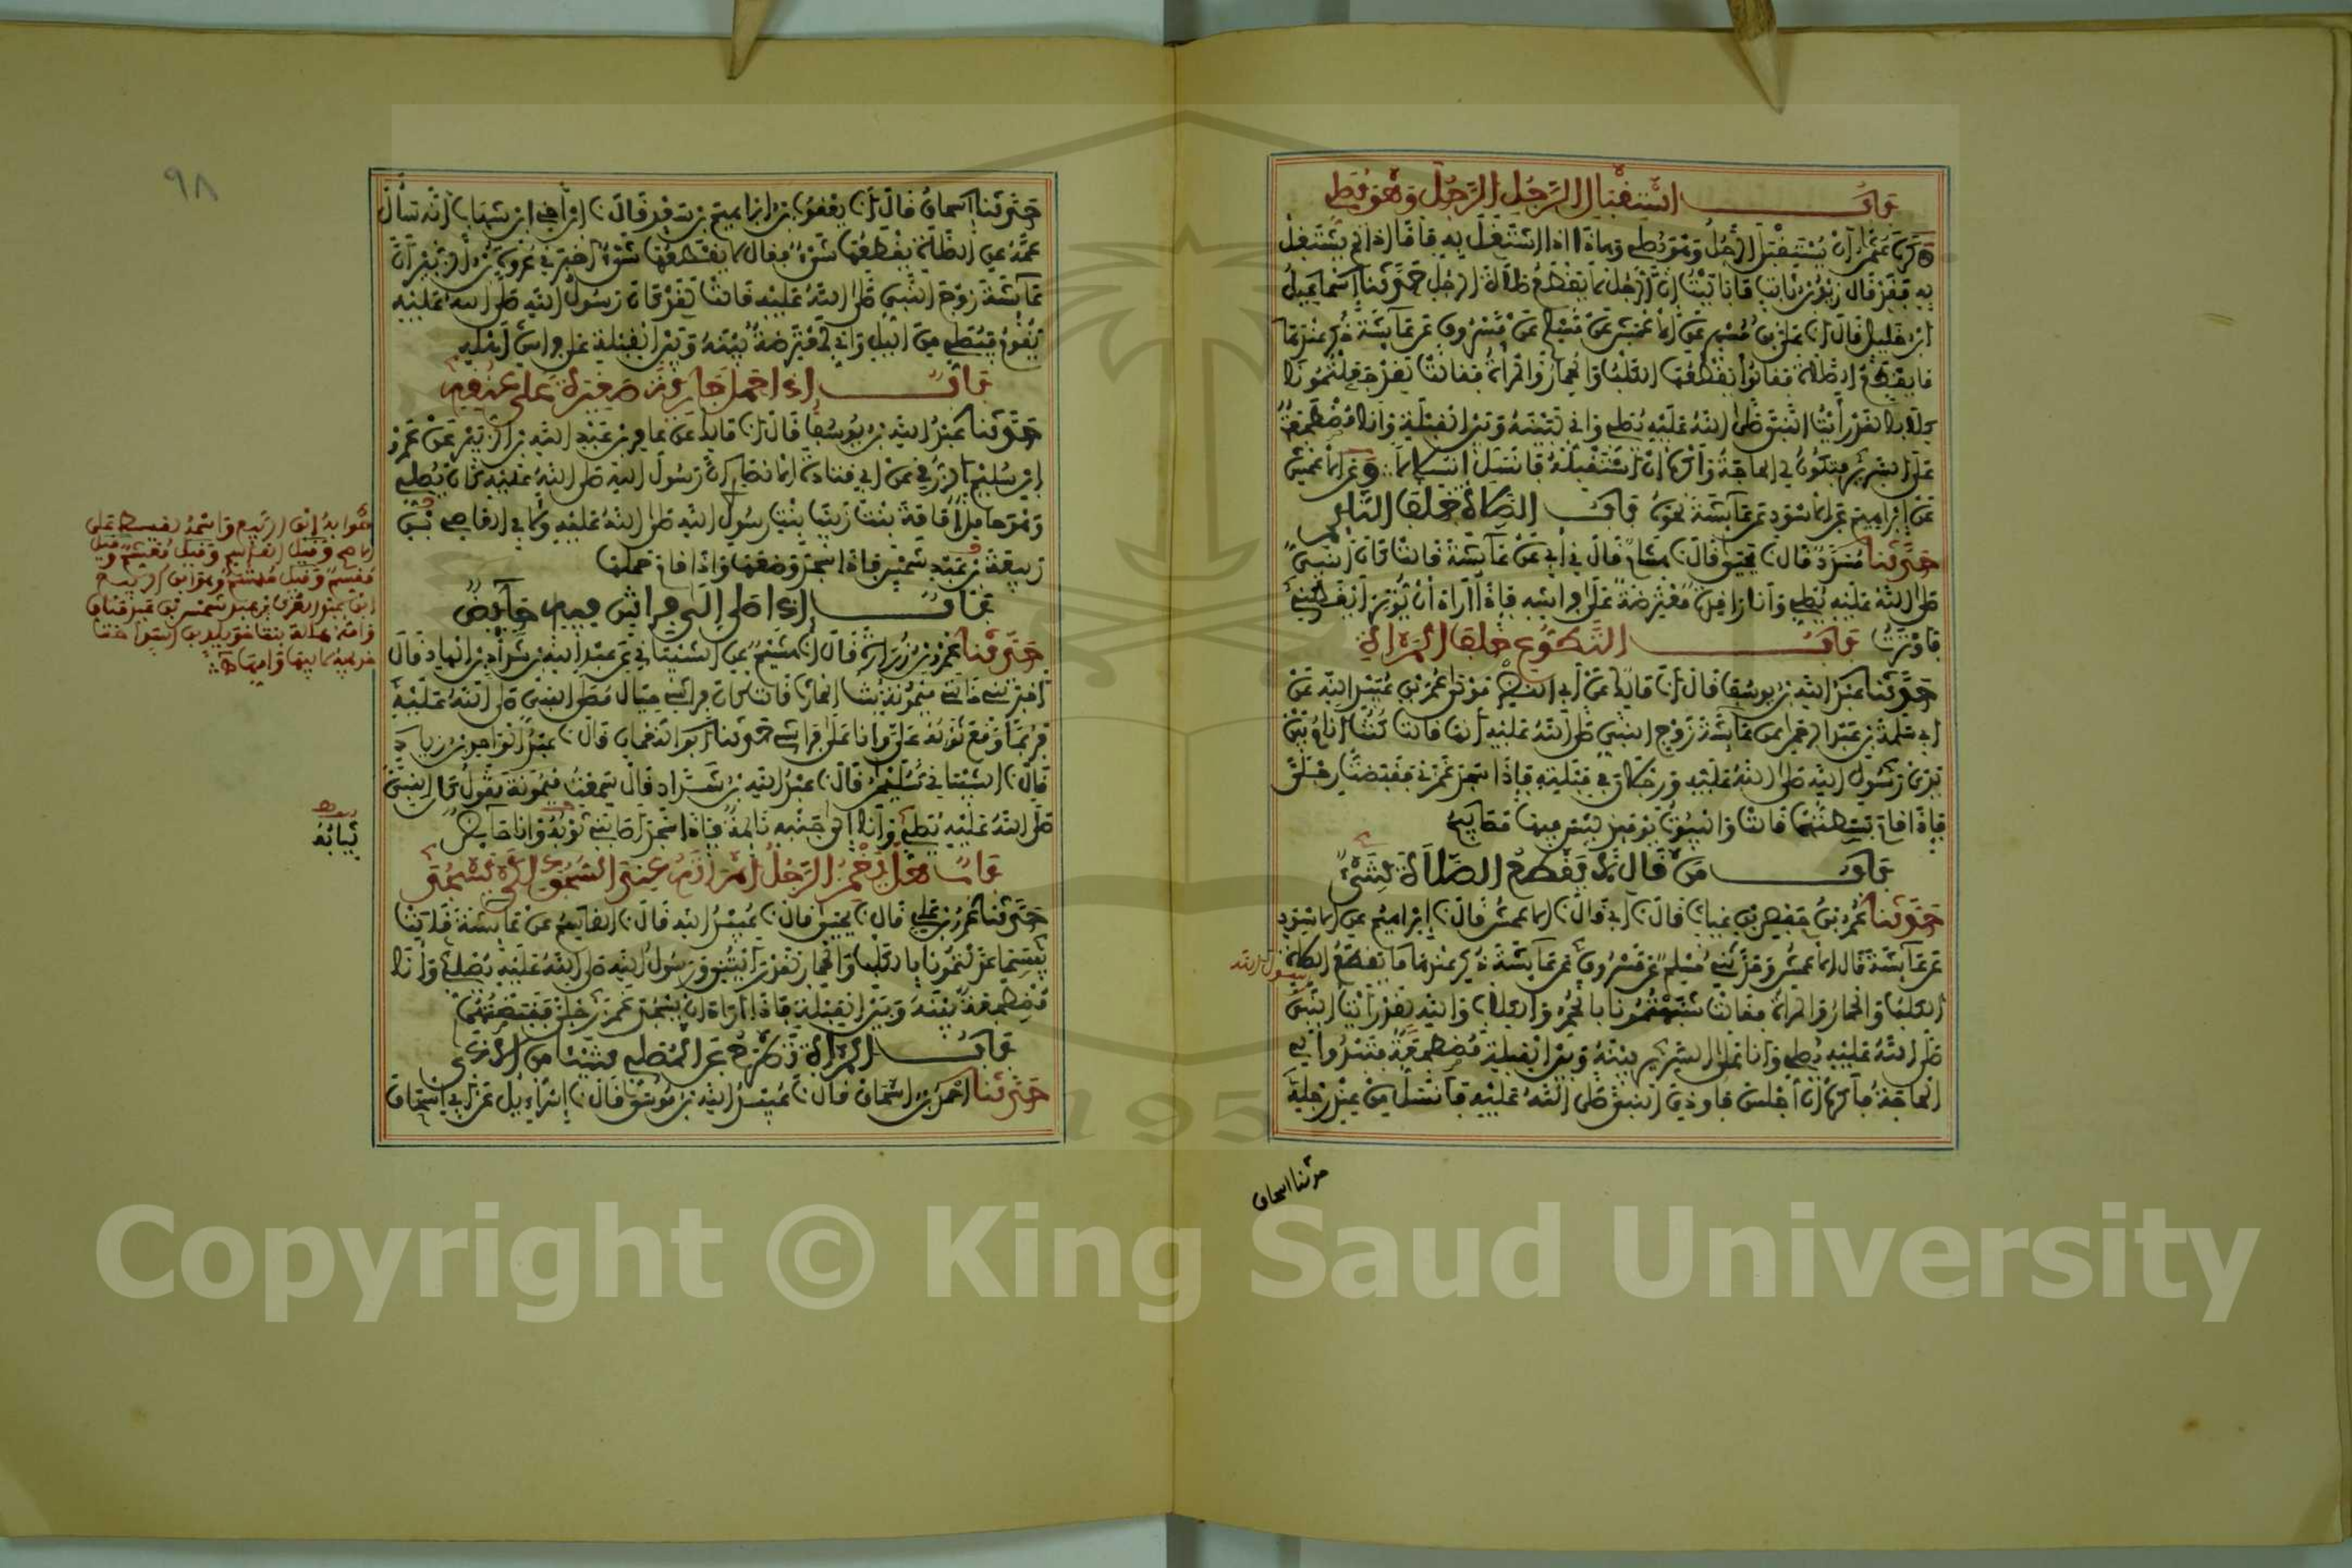 باب استقبال الرجل الرجل وهو يصلي
وكره عثمان أن يستقبل الرجل وهو يصلي وهذا إذا اشتغل به فأما إذا لم يشتغل
به فقد قال زيد بن ثابت ما باليت إن الرجل لا يقطع صلاة الرجل حدثنا إسماعيل
ابن خليل قال نا علي بن مسهر عن الأعمش عن مسلم عن مسروق عن عائشة ذكر عندها
ما يقطع الصلاة فقالوا يقطعها الكلب والحمار والمرأة فقالت لقد جعلتمونا
كلابا لقد رأيت النبي صلى الله عليه يصلي وإني لبينه وبين القبلة وأنا مضطجعة
على السرير فتكون لي الحاجة وأكره أن أستقبله فأنسل انسلالا وعن الأعمش
عن إبراهيم عن الأسود عن عائشة نحوه باب الصلاة خلف النائم
حدثنا مسدد قال نا يحيى قال نا هشام قال ني أبي عن عائشة قالت كان النبي
صلى الله عليه يصلي وأنا راقدة معترضة على فراشه فإذا أراد أن يوتر أيقظني
فأوترت باب التطوع خلف المرأة
حدثنا عبد الله بن يوسف قال أنا مالك عن أبي النضر مولى عمر بن عبيد الله عن
أبي سلمة بن عبد الرحمن عن عائشة زوج النبي صلى الله عليه أنها قالت كنت أنام بين
يدي رسول الله صلى الله عليه ورجلاي في قبلته فإذا سجد غمزني فقبضت رجلي
فإذا قام بسطتهما قالت والبيوت يومئذ ليس فيها مصابيح
باب من قال لا يقطع الصلاة شيء
حدثنا عمر بن حفص بن غياث قال نا أبي قال نا الأعمش قال نا إبراهيم عن الأسود
عن عائشة قال الأعمش وحدثني مسلم عن مسروق عن عائشة ذكر عندها ما يقطع الصلاة
الكلب والحمار والمرأة فقالت شبهتمونا بالحمر والكلاب والله لقد رأيت النبي
رسول الله
صلى الله عليه يصلي وأنا على السرير بينه وبين القبلة مضطجعة فتبدوا لي
الحاجة فأكره أن أجلس فأوذي النبي صلى الله عليه فأنسل من عند رجليه
حدثنا اسحاق
٩٨
حدثنا إسحاق قال أنا يعقوب بن إبراهيم بن سعد قال نا ابن أخي ابن شهاب أنه سأل
عمه عن الصلاة يقطعها شيء فقال لا يقطعها شيء أخبرني عروة بن الزبير أن
عائشة زوج النبي صلى الله عليه قالت لقد كان رسول الله صلى الله عليه
يقوم فيصلي من الليل وإني لمعترضة بينه وبين القبلة على فراش أهله
باب إذا حمل جارية صغيرة على عنقه
حدثنا عبد الله بن يوسف قال أنا مالك عن عامر بن عبد الله بن الزبير عن عمرو
ابن سليم الزرقي عن أبي قتادة الأنصاري أن رسول الله صلى الله عليه كان يصلي
وهو حامل أمامة بنت زينب بنت رسول الله صلى الله عليه ولأبي العاصي بن
ربيعة بن عبد شمس فإذا سجد وضعها وإذا قام حملها
باب إذا صلى إلى فراش فيه حائض
حدثنا عمرو بن زرارة قال أنا هشيم عن الشيباني عن عبد الله بن شداد بن الهاد قال
أخبرتني خالتي ميمونة بنت الحارث قالت كان فراشي حيال مصلى النبي صلى الله عليه
فربما وقع ثوبه علي وأنا على فراشي حدثنا أبو النعمان قال نا عبد الواحد بن زياد
قال نا الشيباني سليمان قال نا عبد الله بن شداد قال سمعت ميمونة تقول كان النبي
صلى الله عليه يصلي وأنا إلى جنبه نائمة فإذا سجد أصابني ثوبه وأنا حائض
باب هل يغمز الرجل امرأته عند السجود لكي يسجد
حدثنا عمرو بن علي قال نا يحيى قال نا عبيد الله قال نا القاسم عن عائشة قالت
بئسما عدلتمونا بالكلب والحمار لقد رأيتني ورسول الله صلى الله عليه يصلي وأنا
مضطجعة بينه وبين القبلة فإذا أراد أن يسجد غمز رجلي فقبضتهما
باب المرأة تطرح عن المصلي شيئا من الأذى
حدثنا أحمد بن إسحاق قال نا عبيد الله بن موسى قال نا إسرائيل عن أبي إسحاق
ثيابه